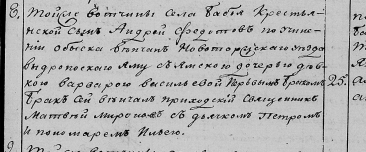 6. Тойже вотчины села Бабья крестьян-
ской сынъ Андрей Федотовъ по учине-
нію обыска венчанъ Новоторжскаго уезда
выдропоскаго Яму съ ямскою дочерью дев-
кою варварою васильевой первымъ бракомъ 25.
бракъ сей венчалъ приходской священникъ
Матвей Миро съ дьячкомъ Петромъ
и пономаремъ Ильею.